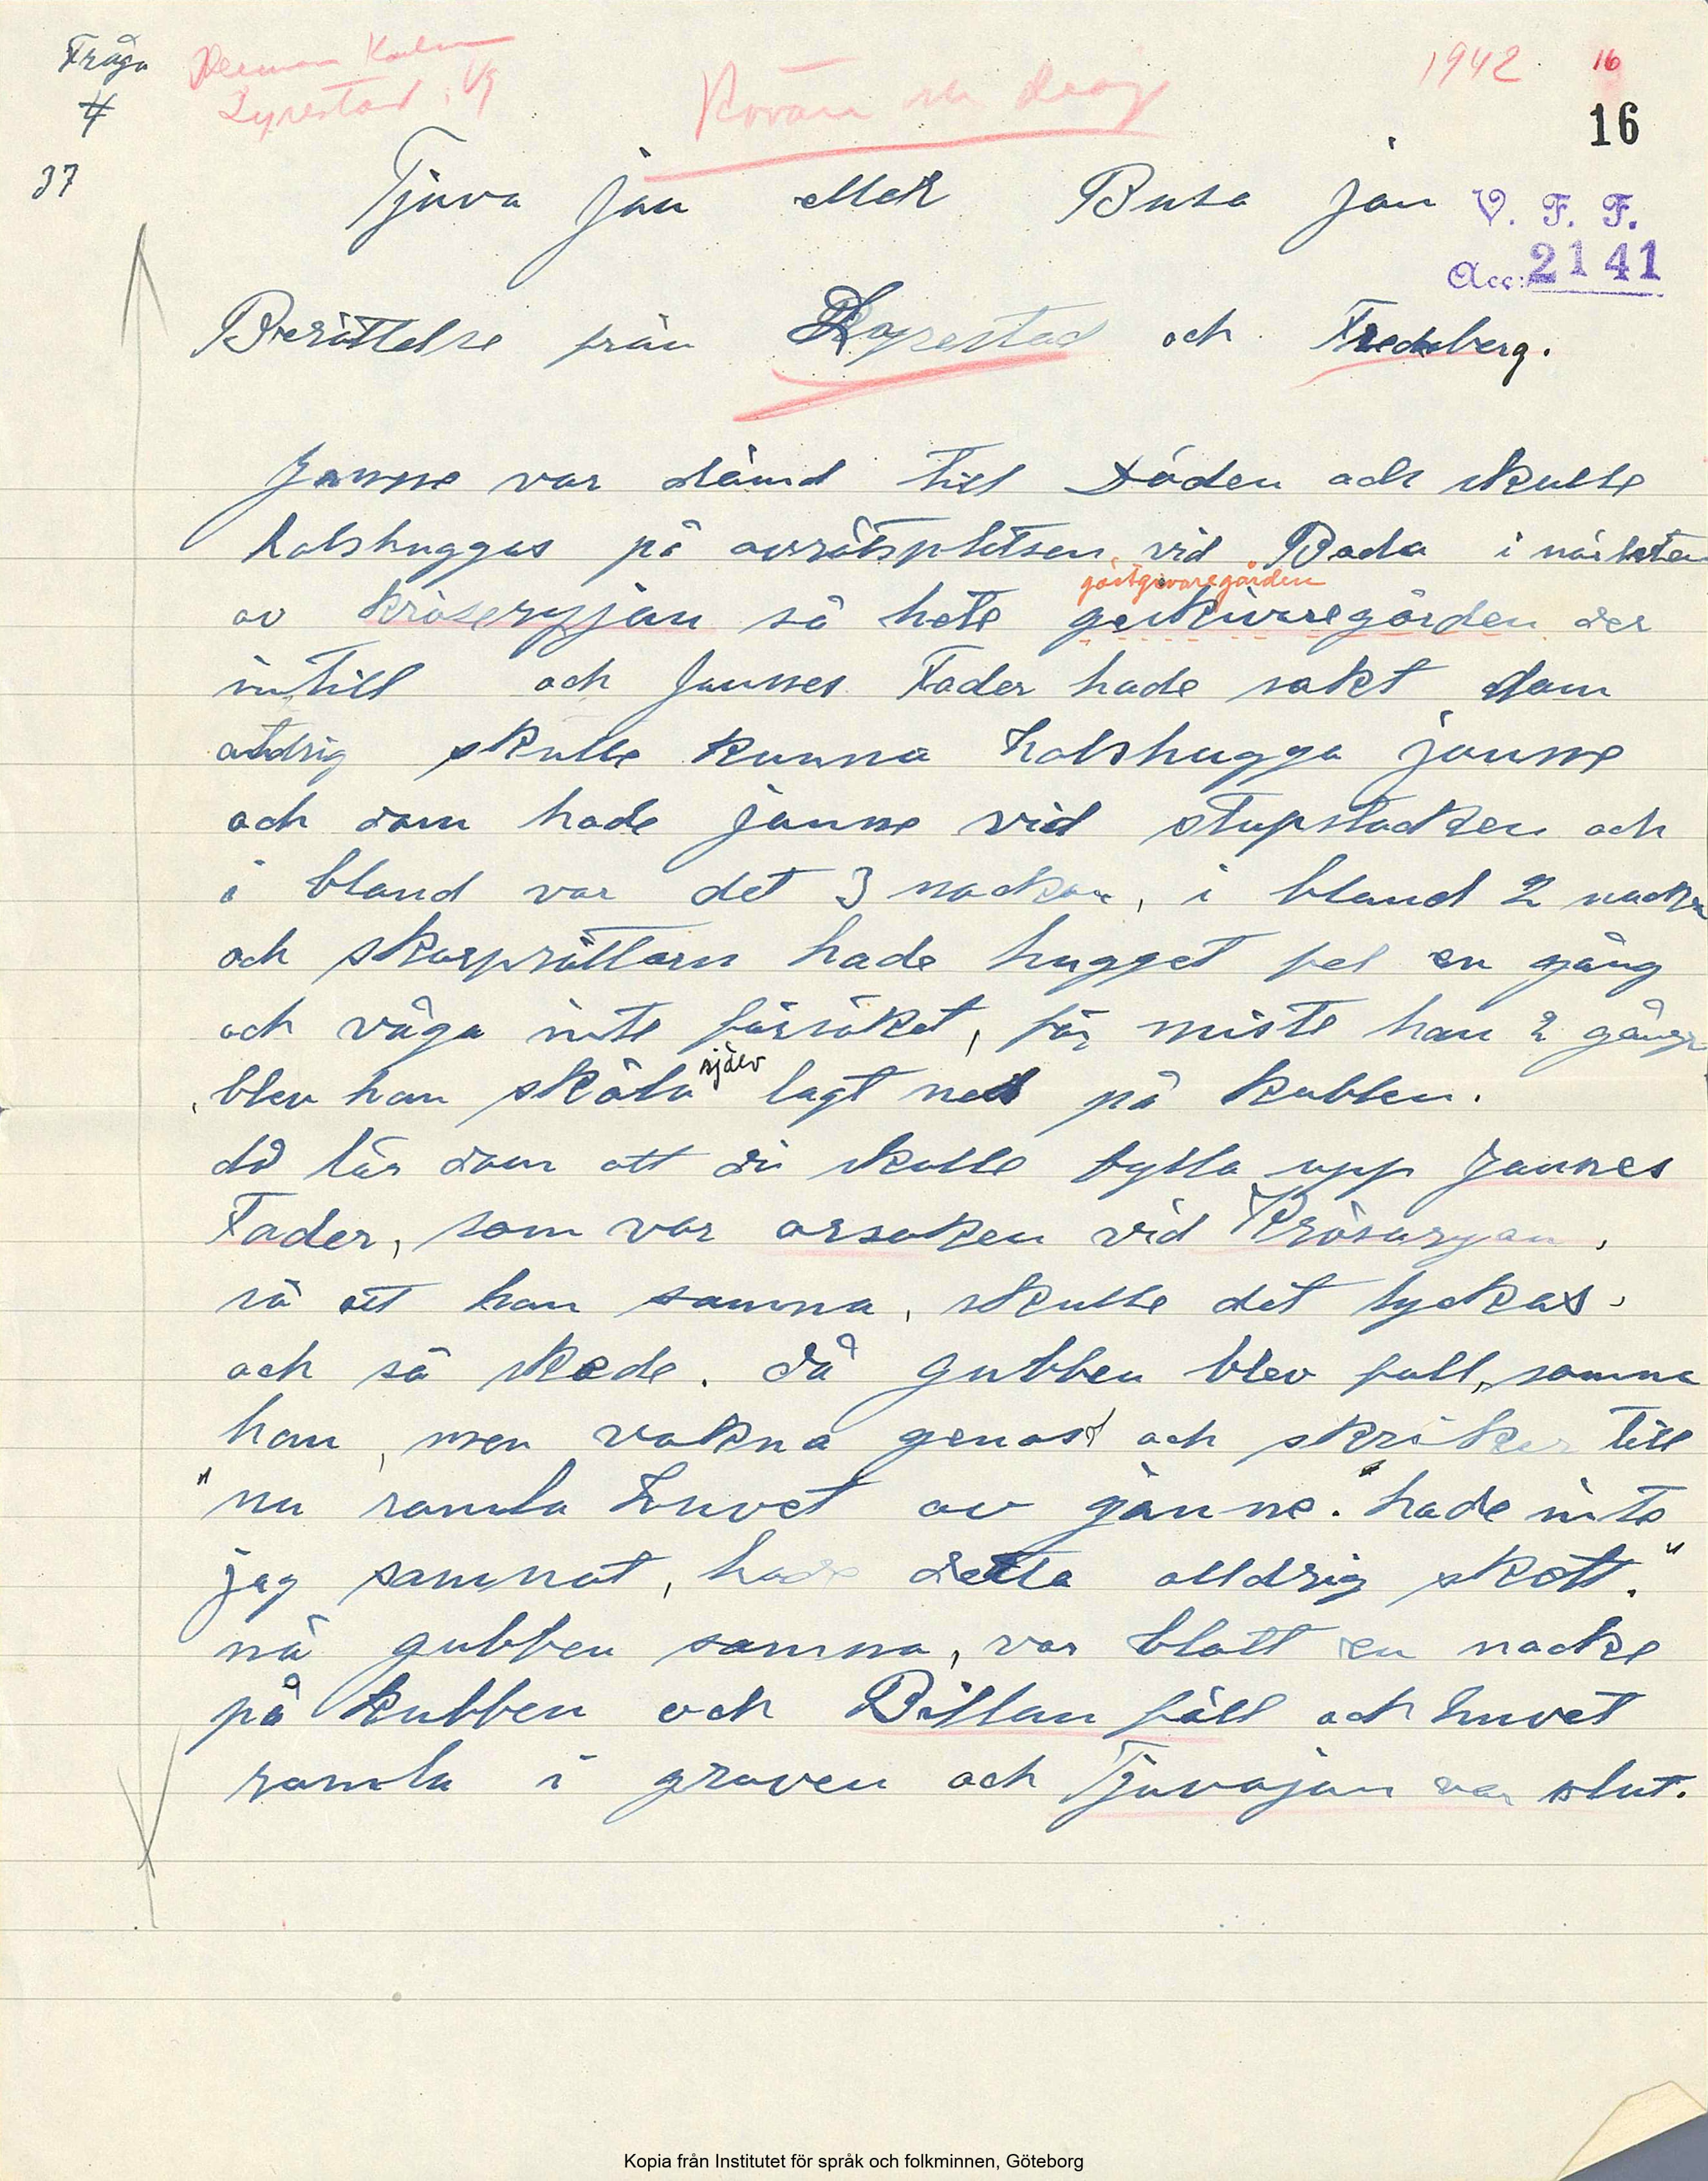 Fråga
4
37
Lyrestad. Vg
Rövare och
1942
16
16
V. F. F.
Acc: 2141
Tjuva jan eller Busa jan
Berättelse från Lyrestad och Fredsberg.
Janne var dämd till Döden och skulle
halshuggas på avrätsplatsen vid Boda i närheten
av Kröseryjan så hete geskivaregården der
gästgivaregården
intill och Jannes Fader hade sakt dam
aldrig skulle kunna halshugga janne
och dom hade janne vid stupstocken och
i bland var det 3 nackar, i bland 2 nackar
och skarprättarn hade hugget fel en gång
och våga inte försöket, för miste han 2 gånger
blev han själv lagt ned på kubben.
då lär dom att di skulle fylla upp Jannes
Fader, som var orsaken vid Krösaryan,
så att han samna, skulle det lyckas,
och så skede. då gubben blev full, somna
han, men vakna genast och skriker till
"nu ramla huvet av janne." hade inte
jag samnat, hade detta alldrig skett."
nä gubben samna, var blott en nacke
på kubben och Billan föll och huvet
ramla i graven och Tjuvajan var slut.
Kopia från Institutet för språk och folkminnen, Göteborg